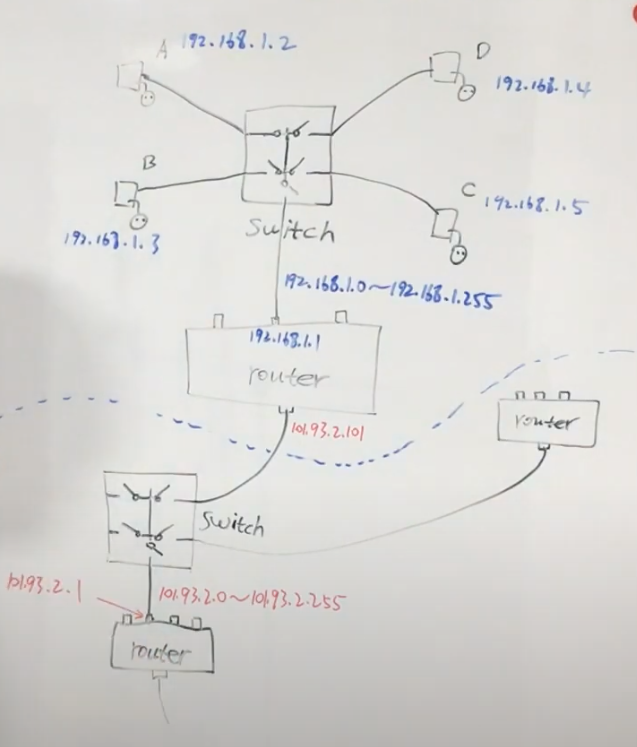 A 192.168.1.2
D
192.168.1.4
B
192.168.1.3
C 192.168.1.5
Switch
192.168.1.0~192.168.1.255
192.168.1.1
router
101.93.2.101
router
Switch
101.93.2.1
101.93.2.0~101.93.2.255
router